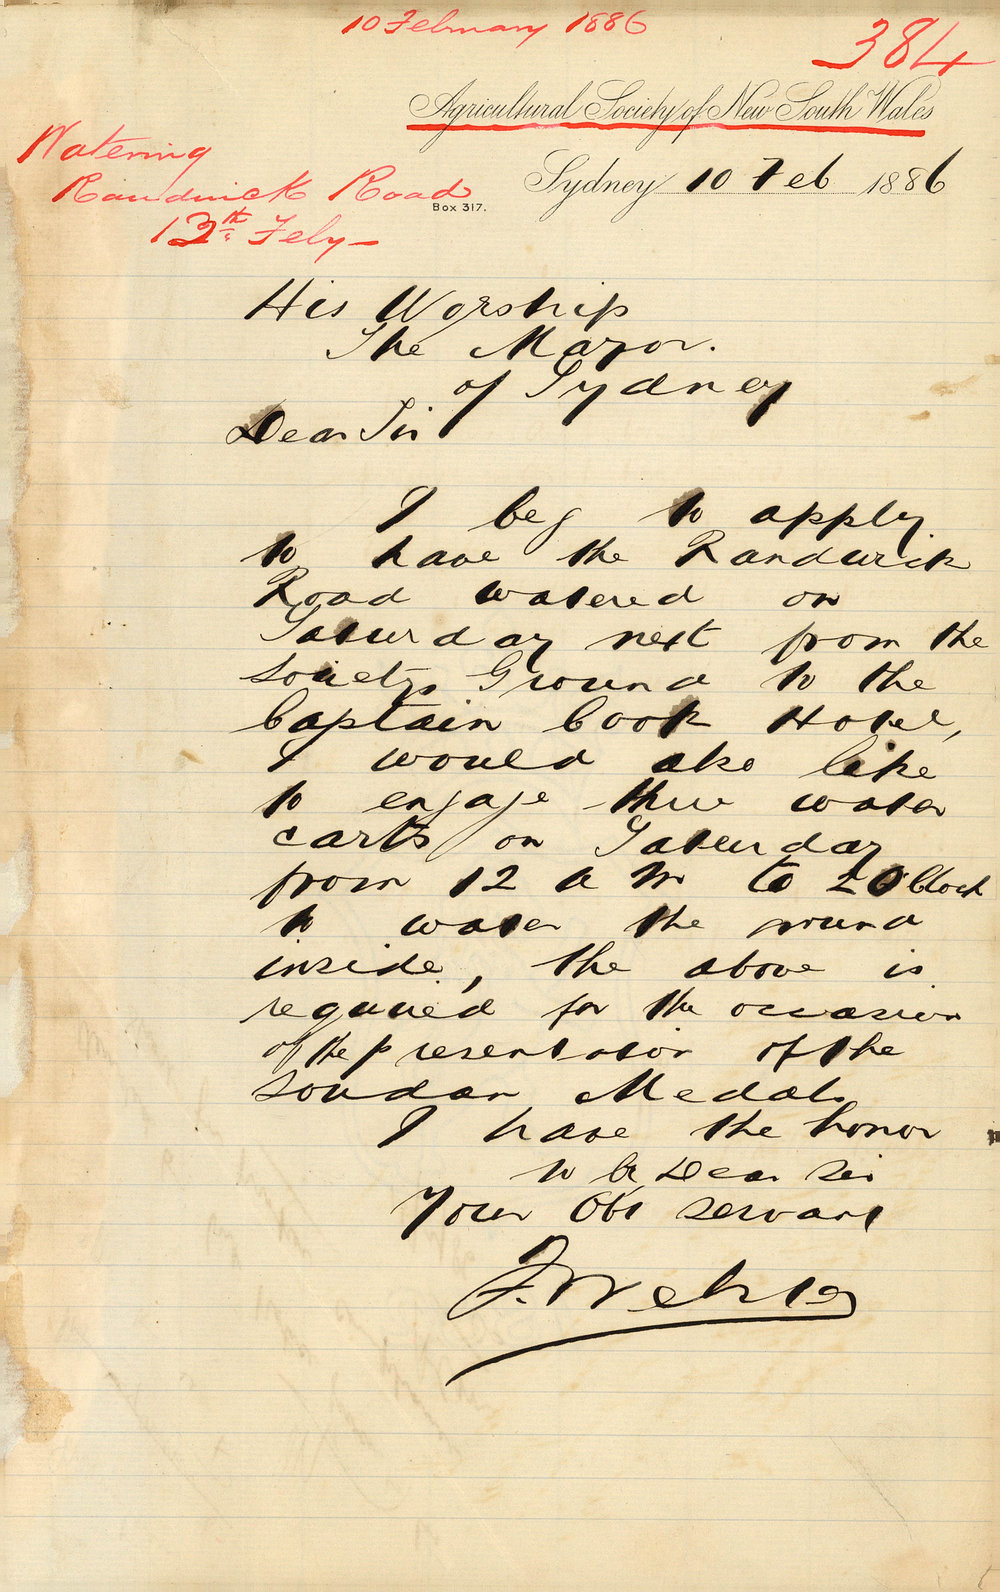 10 February 1886
384
Agricultural Society of New South Wales
Watering
Randwick Road
13th Feby -
Box 317.
Sydney 10 Feb 1886
His Worship
The Mayor.
of Sydney
Dear Sir
I beg to apply
to have the Randwick
Road watered on
Saturday next from the
Societys Ground to the
Captain Cook Hotel,
I would also like
to engage three water
carts on Saturday
from 12 a m to 2 O'Clock
to water the ground
inside, the above is
required for the occasion
of the presentation of the
Soudan Medals
I have the honor
to be Dear Sir
Your Obt servant
F. Webster